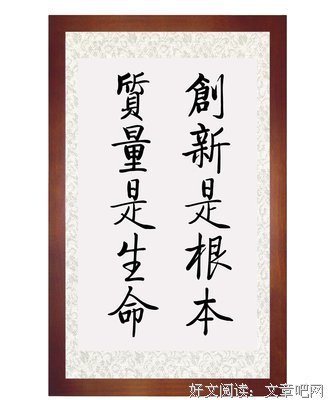 創新是根本
質量是生命
好文阅读：文章吧网